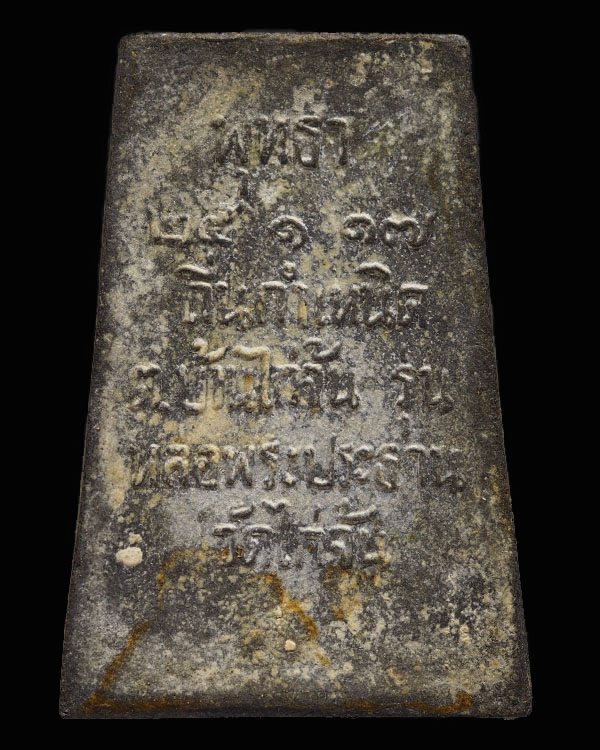 พุทธา
๒๕ ๑ ๑๗
ถิ่นกำเหนิด
ต.บ้านไร่ขิง รุ่น
หล่อพระประธาน
วัดไร่